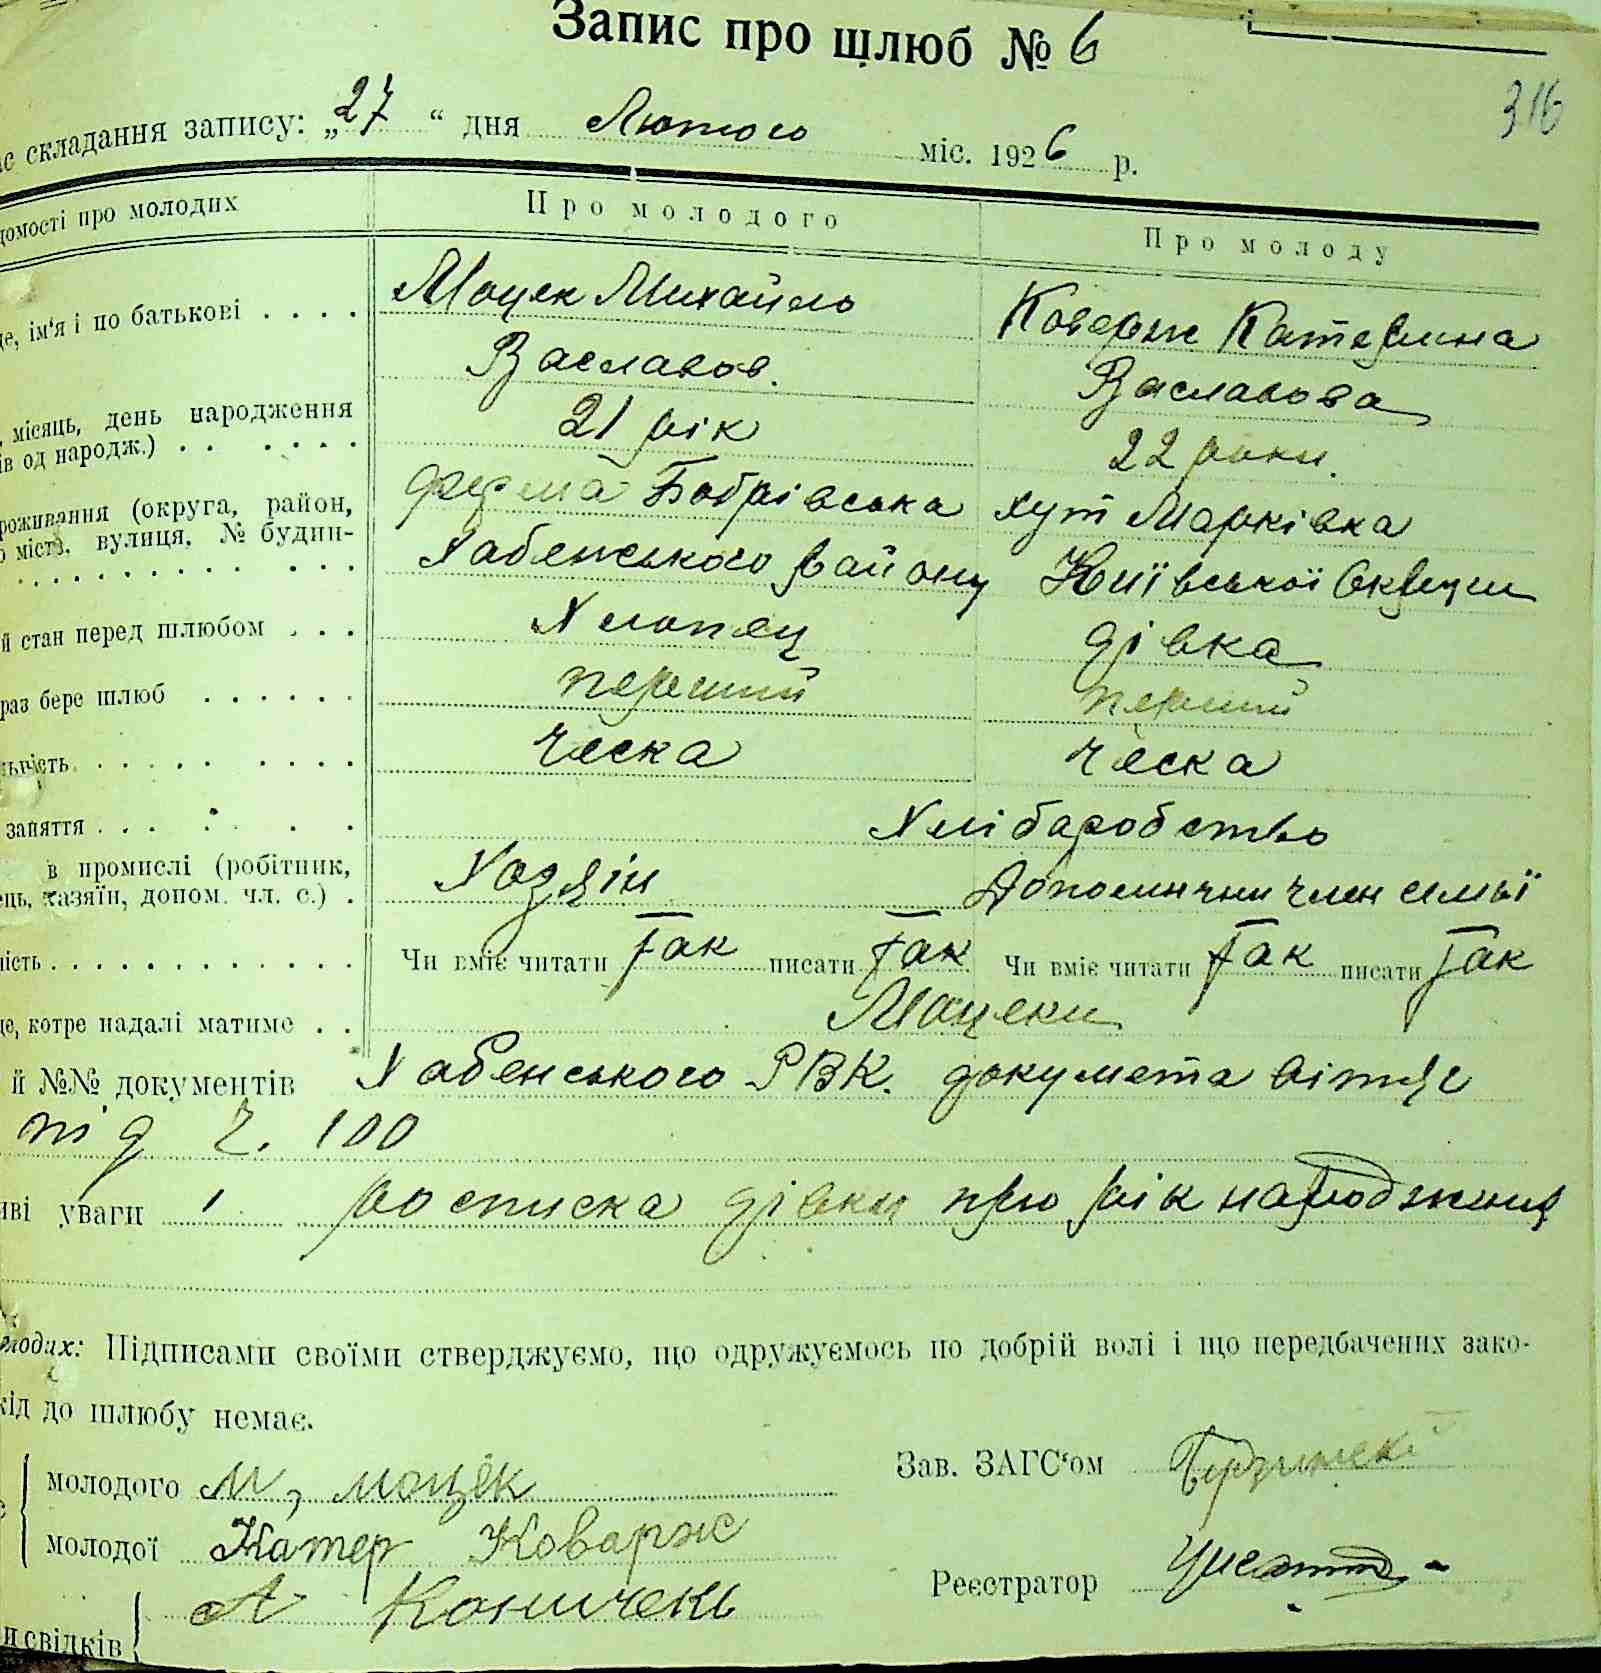 Запис про шлюб № 6
316
с складання запису: „27“ дня Лютого міс. 1926 р.
домості про молодих Про молодого Про молоду
це, ім'я і по батькові . . . . Моцек Михайло Коварж Катерина
Ваславов. Ваславова
, місяць, день народження 21 рік 22 роки.
ів од народж.) . . . . . .
роживання (округа, район, ферма Бобрівська хут Марківка
о місто, вулиця, № будин- Хабенського району Київської Округи
й стан перед шлюбом . . . Хлопец дівка
раз бере шлюб . . . . . . перший перший
ьність . . . . . . . . . ческа ческа
заняття . . . . . . Хлібаробство
в промислі (робітник, Хозяін Допоминчии член семьї
ець, хазяїн, допом. чл. с.) .
ність . . . . . . . . . . . . . Чи вміє читати Так писати Так Чи вміє читати Так писати Так
це, котре надалі матиме . . Моцеки
й №№ документів Хабенського РВК. документа вітця
під ч. 100
иві уваги 1 росписка дівки про рік народження
олодих: Підписами своїми стверджуємо, що одружуємось по добрій волі і що передбачених зако-
кід до шлюбу немає.
молодого М, моцек Зав. ЗАГС'ом
молодої Катер Коварж
Реєстратор
и свідків А Коничекъ